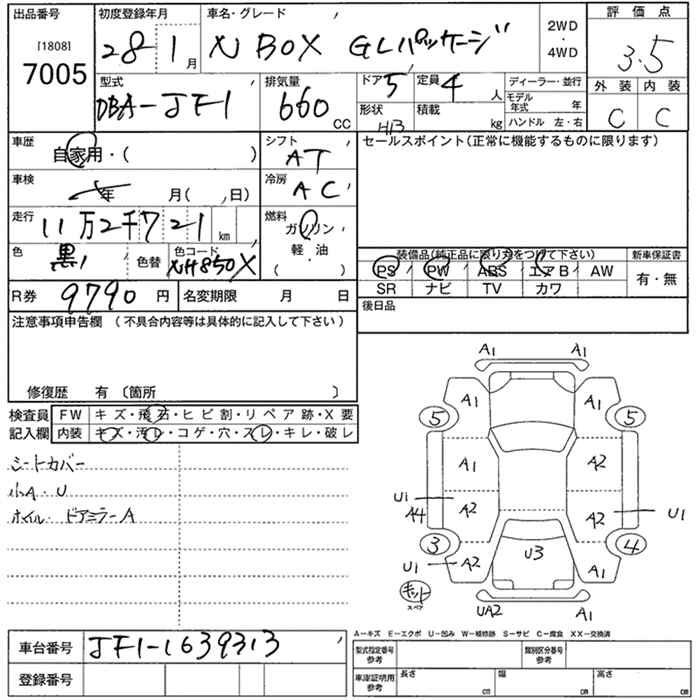 出品番号 初度登録年月 車名・グレード 2WD・4WD 評価点
[1808] 7005 28 1月 N BOX GLパッケージ 3.5
型式 排気量 ドア 5 定員 4人 ディーラー・並行 外装 内装
DBA-JF1 660 CC 形状 HB 積載 kg モデル年式 年 ハンドル 左・右 C C
車歴 自家用・( ) シフト AT セールスポイント(正常に機能するものに限ります)
車検 年 月( , 日) 冷房 AC
走行 11万2千721km 燃料 ガソリン
色 黒 色替 色コード NH850X 軽・油 ( )
装備品(純正品に限り丸をつけて下さい) 新車保証書
PS PW ABS エアB AW 有・無
SR ナビ TV カワ
R券 9790円 名変期限 月 日 後日品
注意事項申告欄 (不具合内容等は具体的に記入して下さい)
修復歴 有 〔箇所 〕
検査員 FW キズ・飛石・ヒビ割・リペア跡・X要
記入欄 内装 キズ・汚レ・コゲ・穴・スレ・キレ・破レ
シートカバー
小A・U
ホイル・ドアミラーA
A1 A1
A1 A1
5 5
A1 A2
U1 A4 A2 A2 U1
3 4
U1 A2 U3 A1
キット スペア
UA2 A1
A-キズ E-エクボ U-凹み W-補修跡 S-サビ C-腐食 XX-交換済
車台番号 JF1-1639313 型式指定番号 参考 類別区分番号 参考
登録番号 車庫証明用 参考 長さ cm 幅 cm 高さ cm